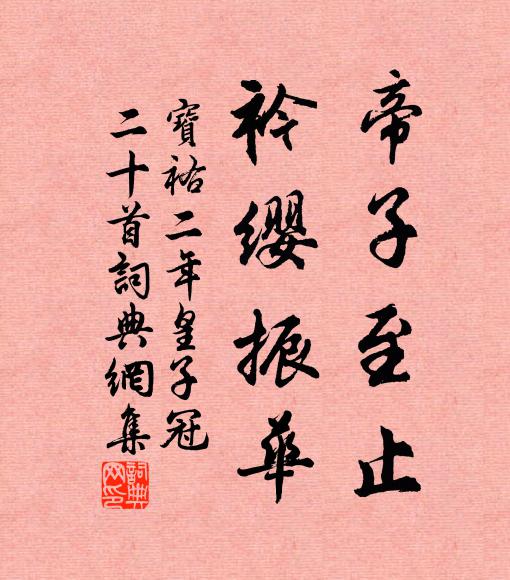 帝子至止
衿纓振華
寶祐二年皇子冠
二十首詞典網集
詞典
网印